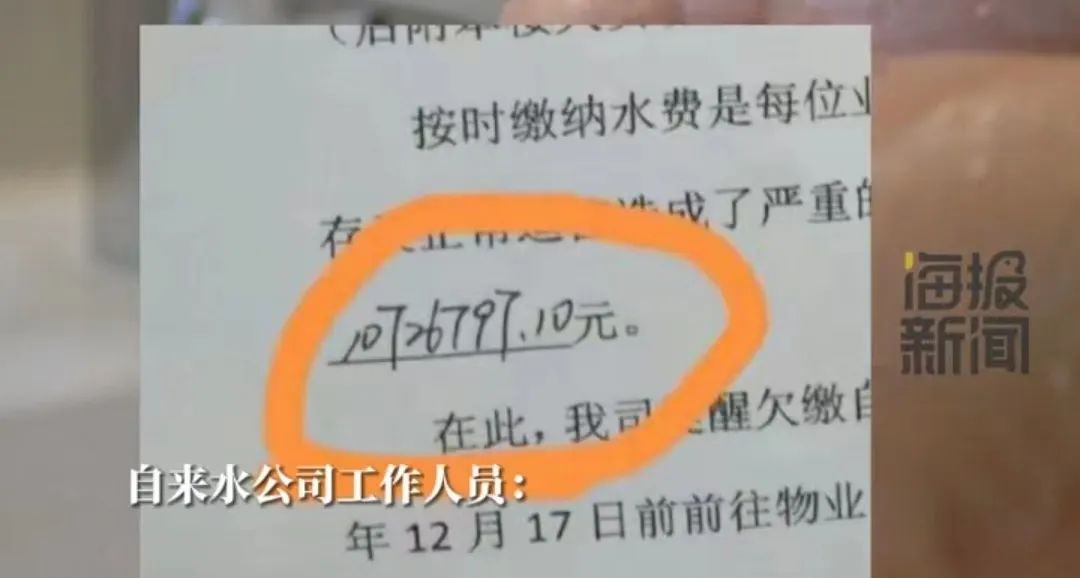 按时缴纳水费是每位业
造成了严重的
10726797.10元。
在此，我司提醒欠缴自
年12月17日前前往物业
自来水公司工作人员：
海报
新闻